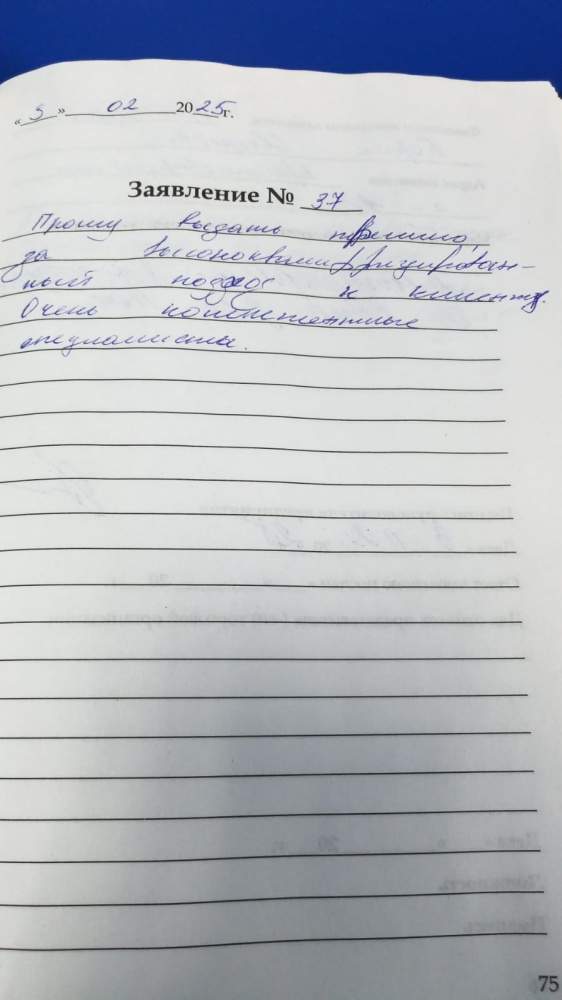 «5» 02 2025г.
Заявление № 37
Прошу выдать премию,
за высококвалифицирован-
ный подход к клиенту.
Очень компетентные
специалисты.
75